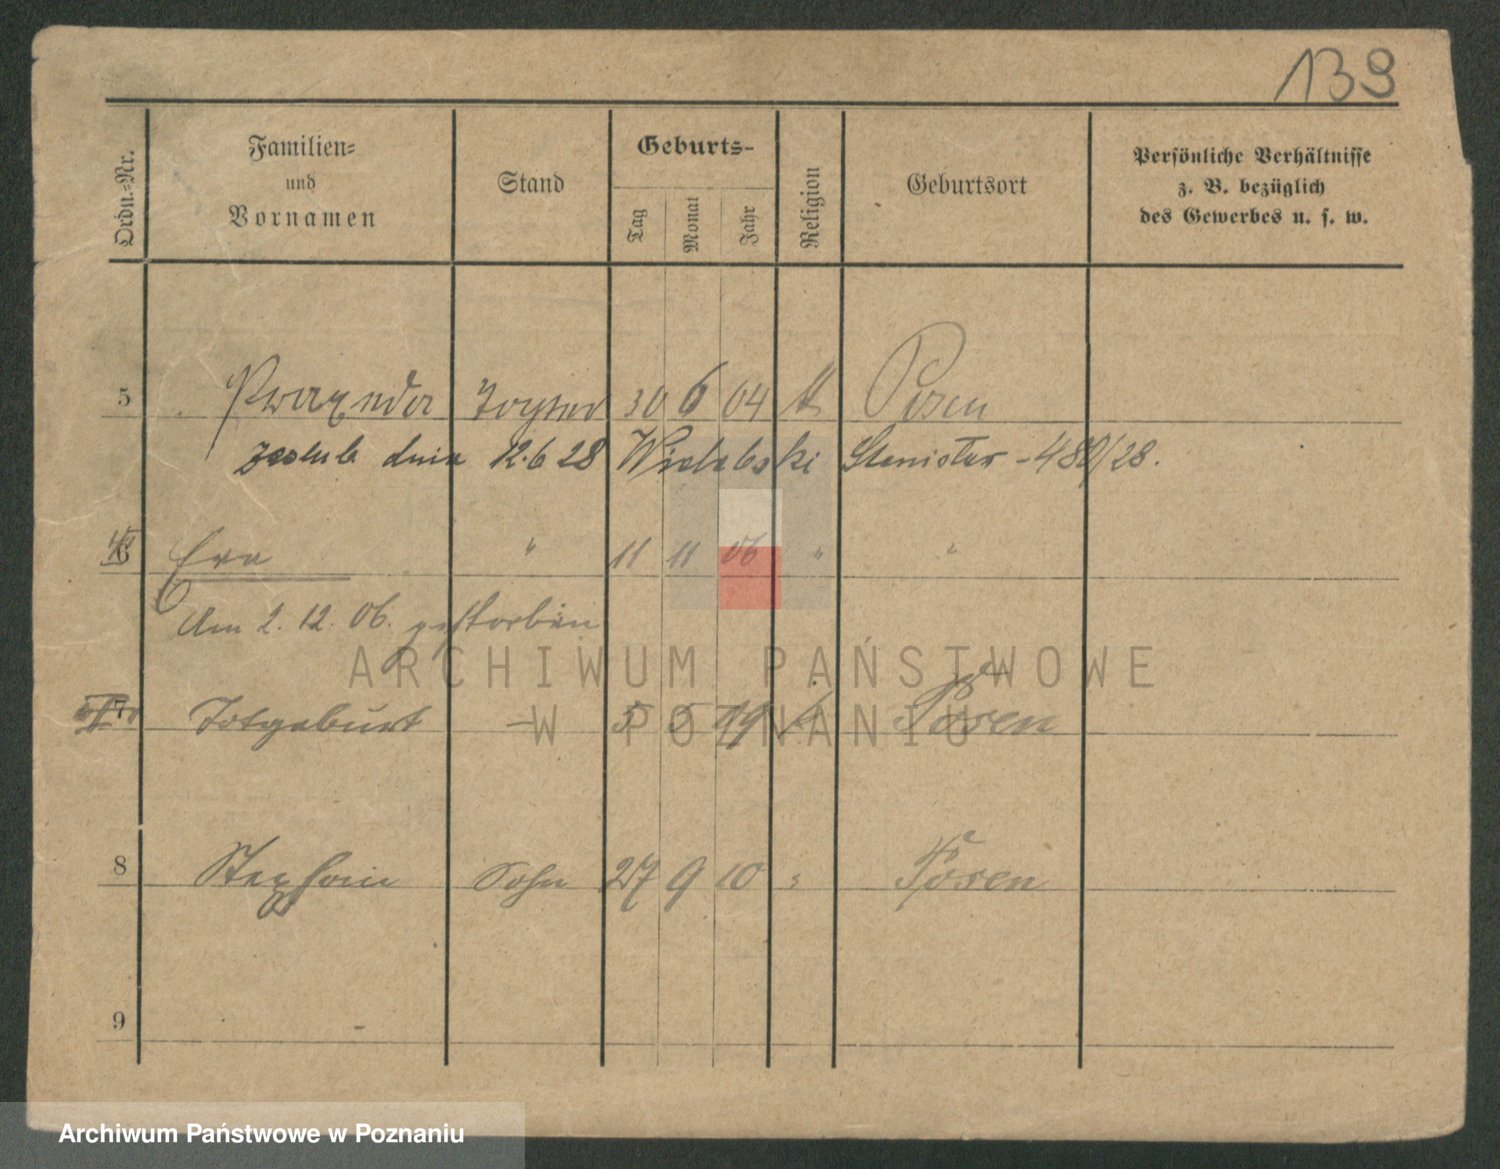 139
Ordn.-Nr. Familien- und Vornamen Stand Geburts- Tag Monat Jahr Religion Geburtsort Persönliche Verhältnisse z. B. bezüglich des Gewerbes u. s. w.
5 Praxeda Tochter 30 6 04 k Posen
zaślub. dnia 12.6 28 Stanisław - 480/28.
6 Eva " 11 11 06 " "
Am 2. 12. 06. gestorben
7 Totgeburt — 5 5 09 k Posen
8 Stephan Sohn 27 9 10 " Posen
9
ARCHIWUM PAŃSTWOWE
W POZNANIU
Archiwum Państwowe w Poznaniu